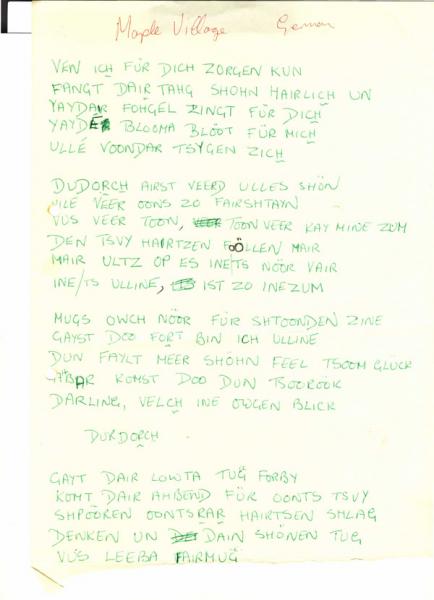 Maple Village German
VEN ICH FÜR DICH ZORGEN KUN
FANGT DAIR TAHG SHÖHN HAIRLICH UN
YAYDAR FOHGEL ZINGT FÜR DICH
YAYDER BLOOMA BLÖOT FÜR MICH
ULLÉ VOONDAR TSYGEN ZICH
DUDORCH AIRST VEERD ULLES SHÖN
VILE VEER OONS ZO FAIRSHTAYN
VUS VEER TOON, TOON VEER KAY MINE ZUM
DEN TSVY HAIRTZEN FÖLLEN MAIR
MAIR ULTZ OP ES INE/TS NÖOR VAIR
INE/TS ULLINE, IST ZO INEZUM
MUGS OWCH NÖOR FÜR SHTOONDEN ZINE
GAYST DOO FORT BIN ICH ULLINE
DUN FAYLT MEER SHÖHN FEEL TSOOM GLÜCK
KOMST DOO DUN TSOORÖOK
DARLING, VELCH INE OWGEN BLICK
DURDORCH
GAYT DAIR LOWTA TUG FORBY
KOMT DAIR AHBEND FÜR OONTS TSVY
SHPÖOREN OONTSRAR HAIRTSEN SHLAG
DENKEN UN DAIN SHÖNEN TUG
VUS LEEBA FAIRMUG